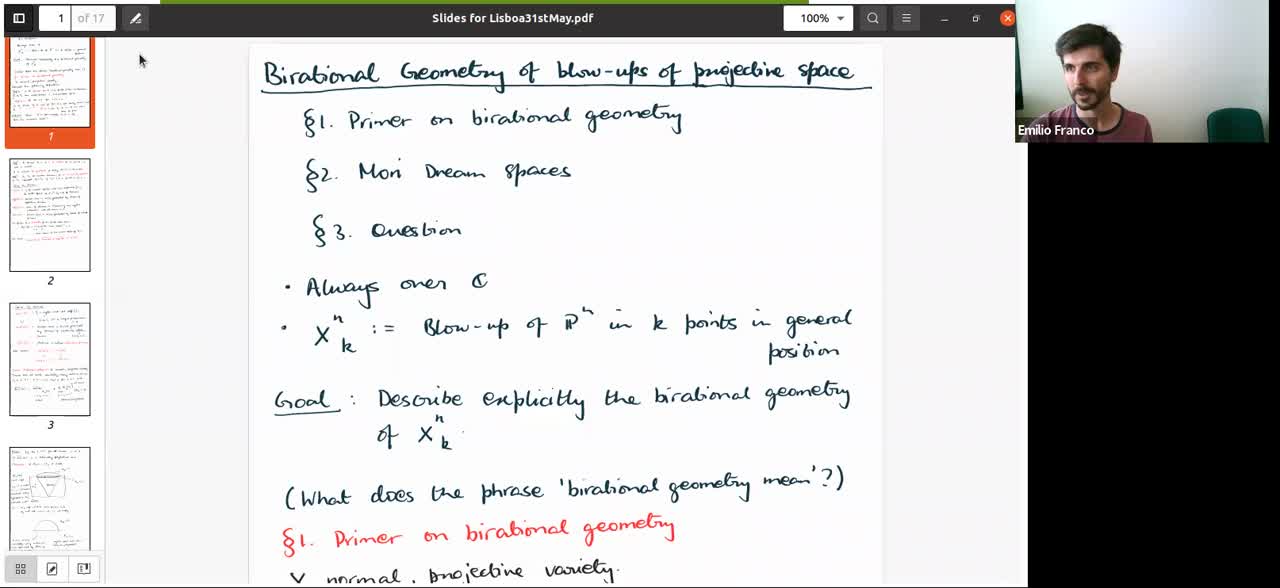 1 of 17
Slides for Lisboa31stMay.pdf
100%
Emilio Franco
1
2
3
Birational Geometry of blow-ups of projective space
§1. Primer on birational geometry
§2. Mori Dream Spaces
§3. Question
• Always over ℂ
• X^n_k := Blow-up of ℙ^n in k points in general
position
Goal : Describe explicitly the birational geometry
of X^n_k.
(What does the phrase 'birational geometry mean'?)
§1. Primer on birational geometry
X normal, projective variety.